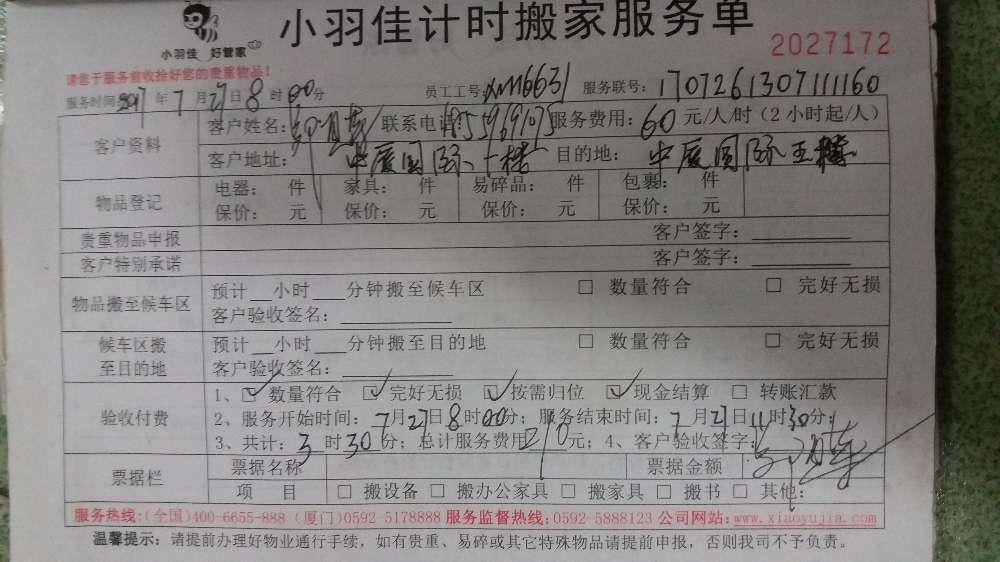 小羽佳 好管家
小羽佳计时搬家服务单
2027172
请您于服务前收拾好您的贵重物品!
服务时间 2017 年 7 月 27 日 8 时 00 分 员工工号: xm16631 服务联号: 1707261307111160
客户资料 客户姓名: 联系电话: 服务费用: 60 元/人/时（2小时起/人）
客户地址: 中厦国际十楼 目的地: 中厦国际五楼
物品登记 电器: 件 家具: 件 易碎品: 件 包裹: 件
保价: 元 保价: 元 保价: 元 保价: 元
贵重物品申报 客户签字: ________
客户特别承诺 客户签字: ________
物品搬至候车区 预计__小时___分钟搬至候车区 □ 数量符合 □ 完好无损
客户验收签名: ________
候车区搬至目的地 预计__小时___分钟搬至目的地 □ 数量符合 □ 完好无损
客户验收签名: ________
验收付费 1、☑ 数量符合 ☑ 完好无损 ☑ 按需归位 ☑ 现金结算 □ 转账汇款
2、服务开始时间: 7月27日8时00分; 服务结束时间: 7月27日11时30分;
3、共计: 3时30分; 总计服务费用210元; 4、客户验收签字:
票据栏 票据名称 票据金额
项 目 □ 搬设备 □ 搬办公家具 □ 搬家具 □ 搬书 □ 其他:
服务热线:(全国)400-6655-888（厦门)0592-5178888 服务监督热线:0592-5888123 公司网站:www.xiaoyujia.com
温馨提示: 请提前办理好物业通行手续，如有贵重、易碎或其它特殊物品请提前申报，否则我司不予负责。